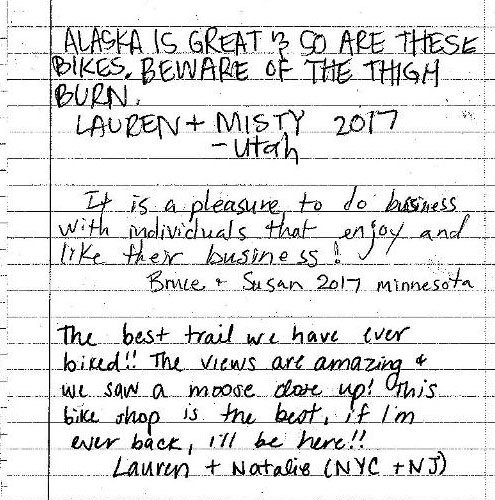 ALASKA IS GREAT & SO ARE THESE
BIKES. BEWARE OF THE THIGH
BURN.
LAUREN + MISTY 2017
- Utah
It is a pleasure to do business
with individuals that enjoy and
like their business!
Bruce + Susan 2017 minnesota
The best trail we have ever
biked!! The views are amazing &
we saw a moose close up! This
bike shop is the best, if I'm
ever back, I'll be here!!
Lauren + Natalie (NYC + NJ)